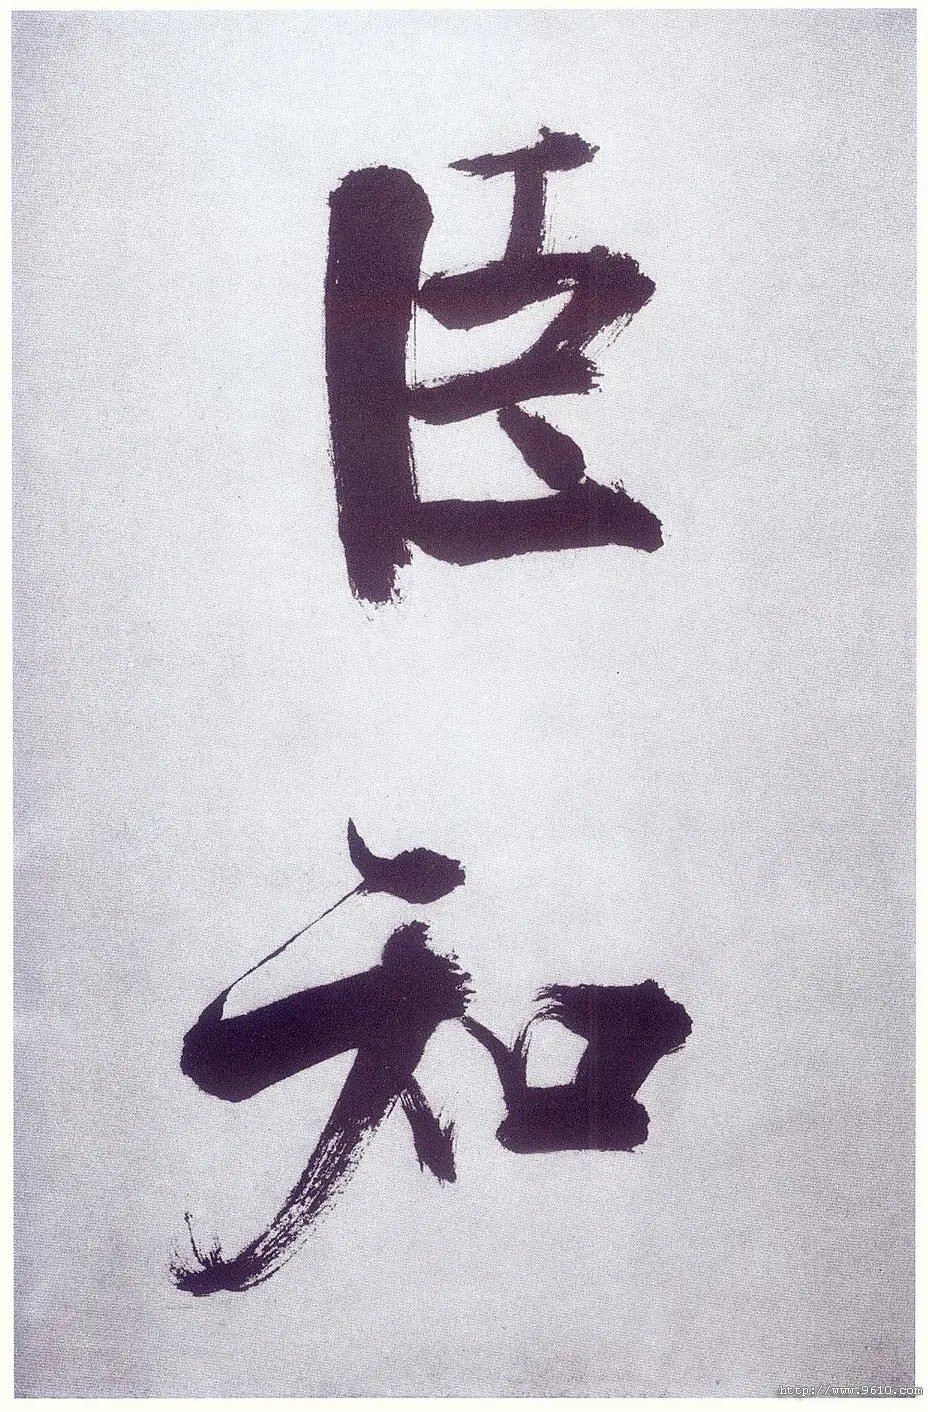 臣
知
http://www.9610.com